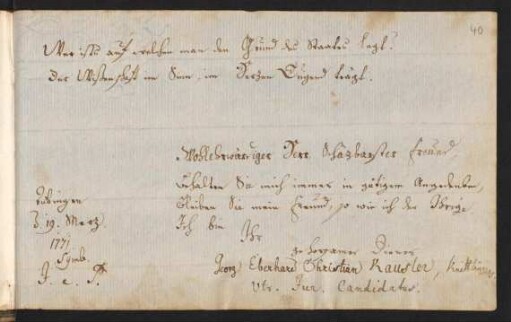 40
Wer ists auf welchen man den Grund des Staates legt?
Der Wissenschaft im Sinn, im Herzen Tugend trägt.
Wohlehrwürdiger Herr Schäzbarster Freund,
Erhalten Sie mich immer in gütigem Angedenken,
Bleiben Sie mein Freund, so wie ich der Ihrige
Ich bin
Ihr
gehorsamer Diener
Georg Eberhard Christian Kausler,
Utr. Jur. Candidatus.
Tübingen
d. 19. Merz
1771
Symb.
J. e. T.